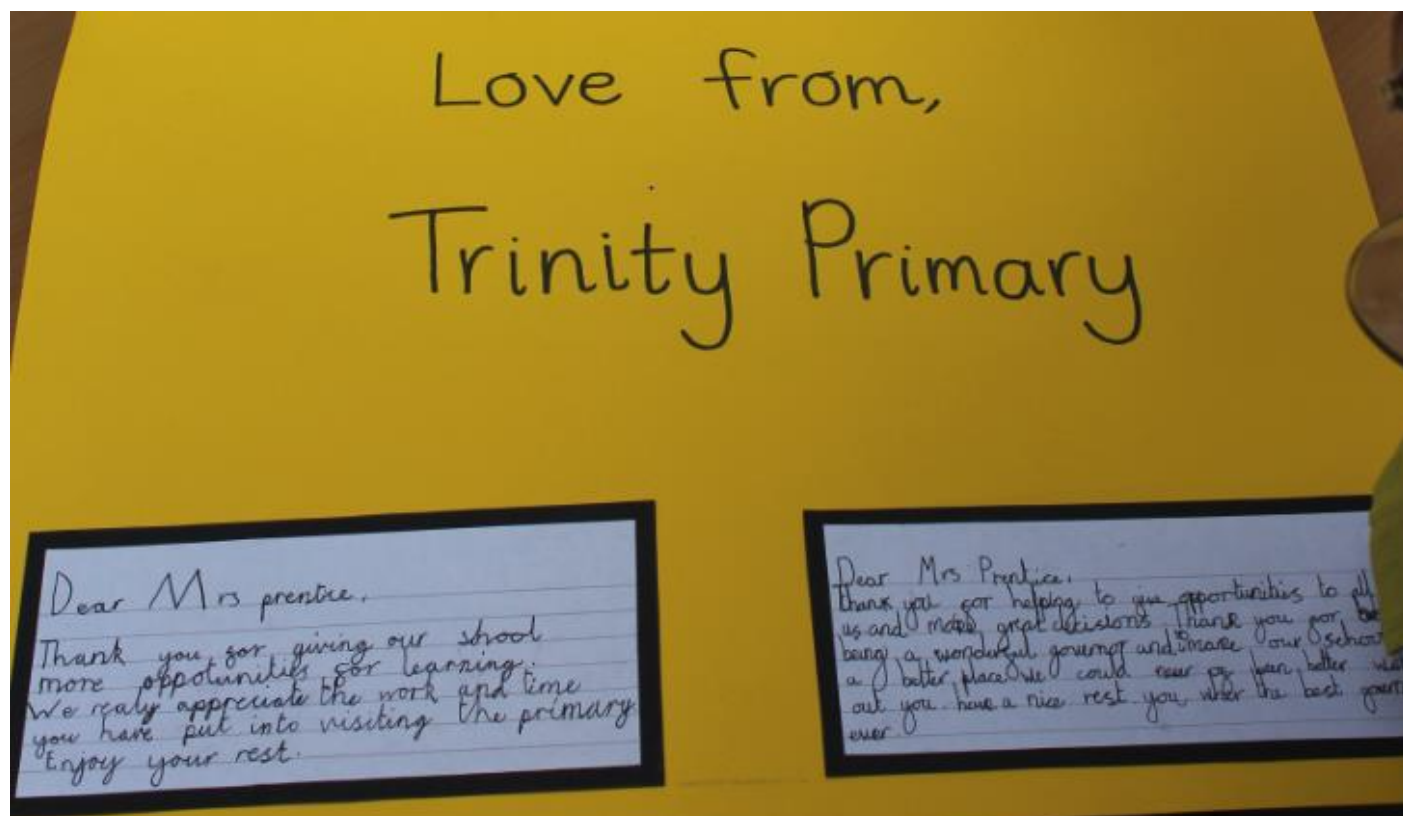 Love from,
Trinity Primary
Dear Mrs prentice.
Thank you for giving our shool
more oppotunities for learning.
We realy appreciate the work and time
you have put into visiting the primary
Enjoy your rest.
Dear Mrs Prentice.
thank you for helping to give opportunities to all
us and make great decisions. Thank you for
being a wonderful governor and make our school
a better place we could never of been better
out you have a nice rest you wher the best
ever